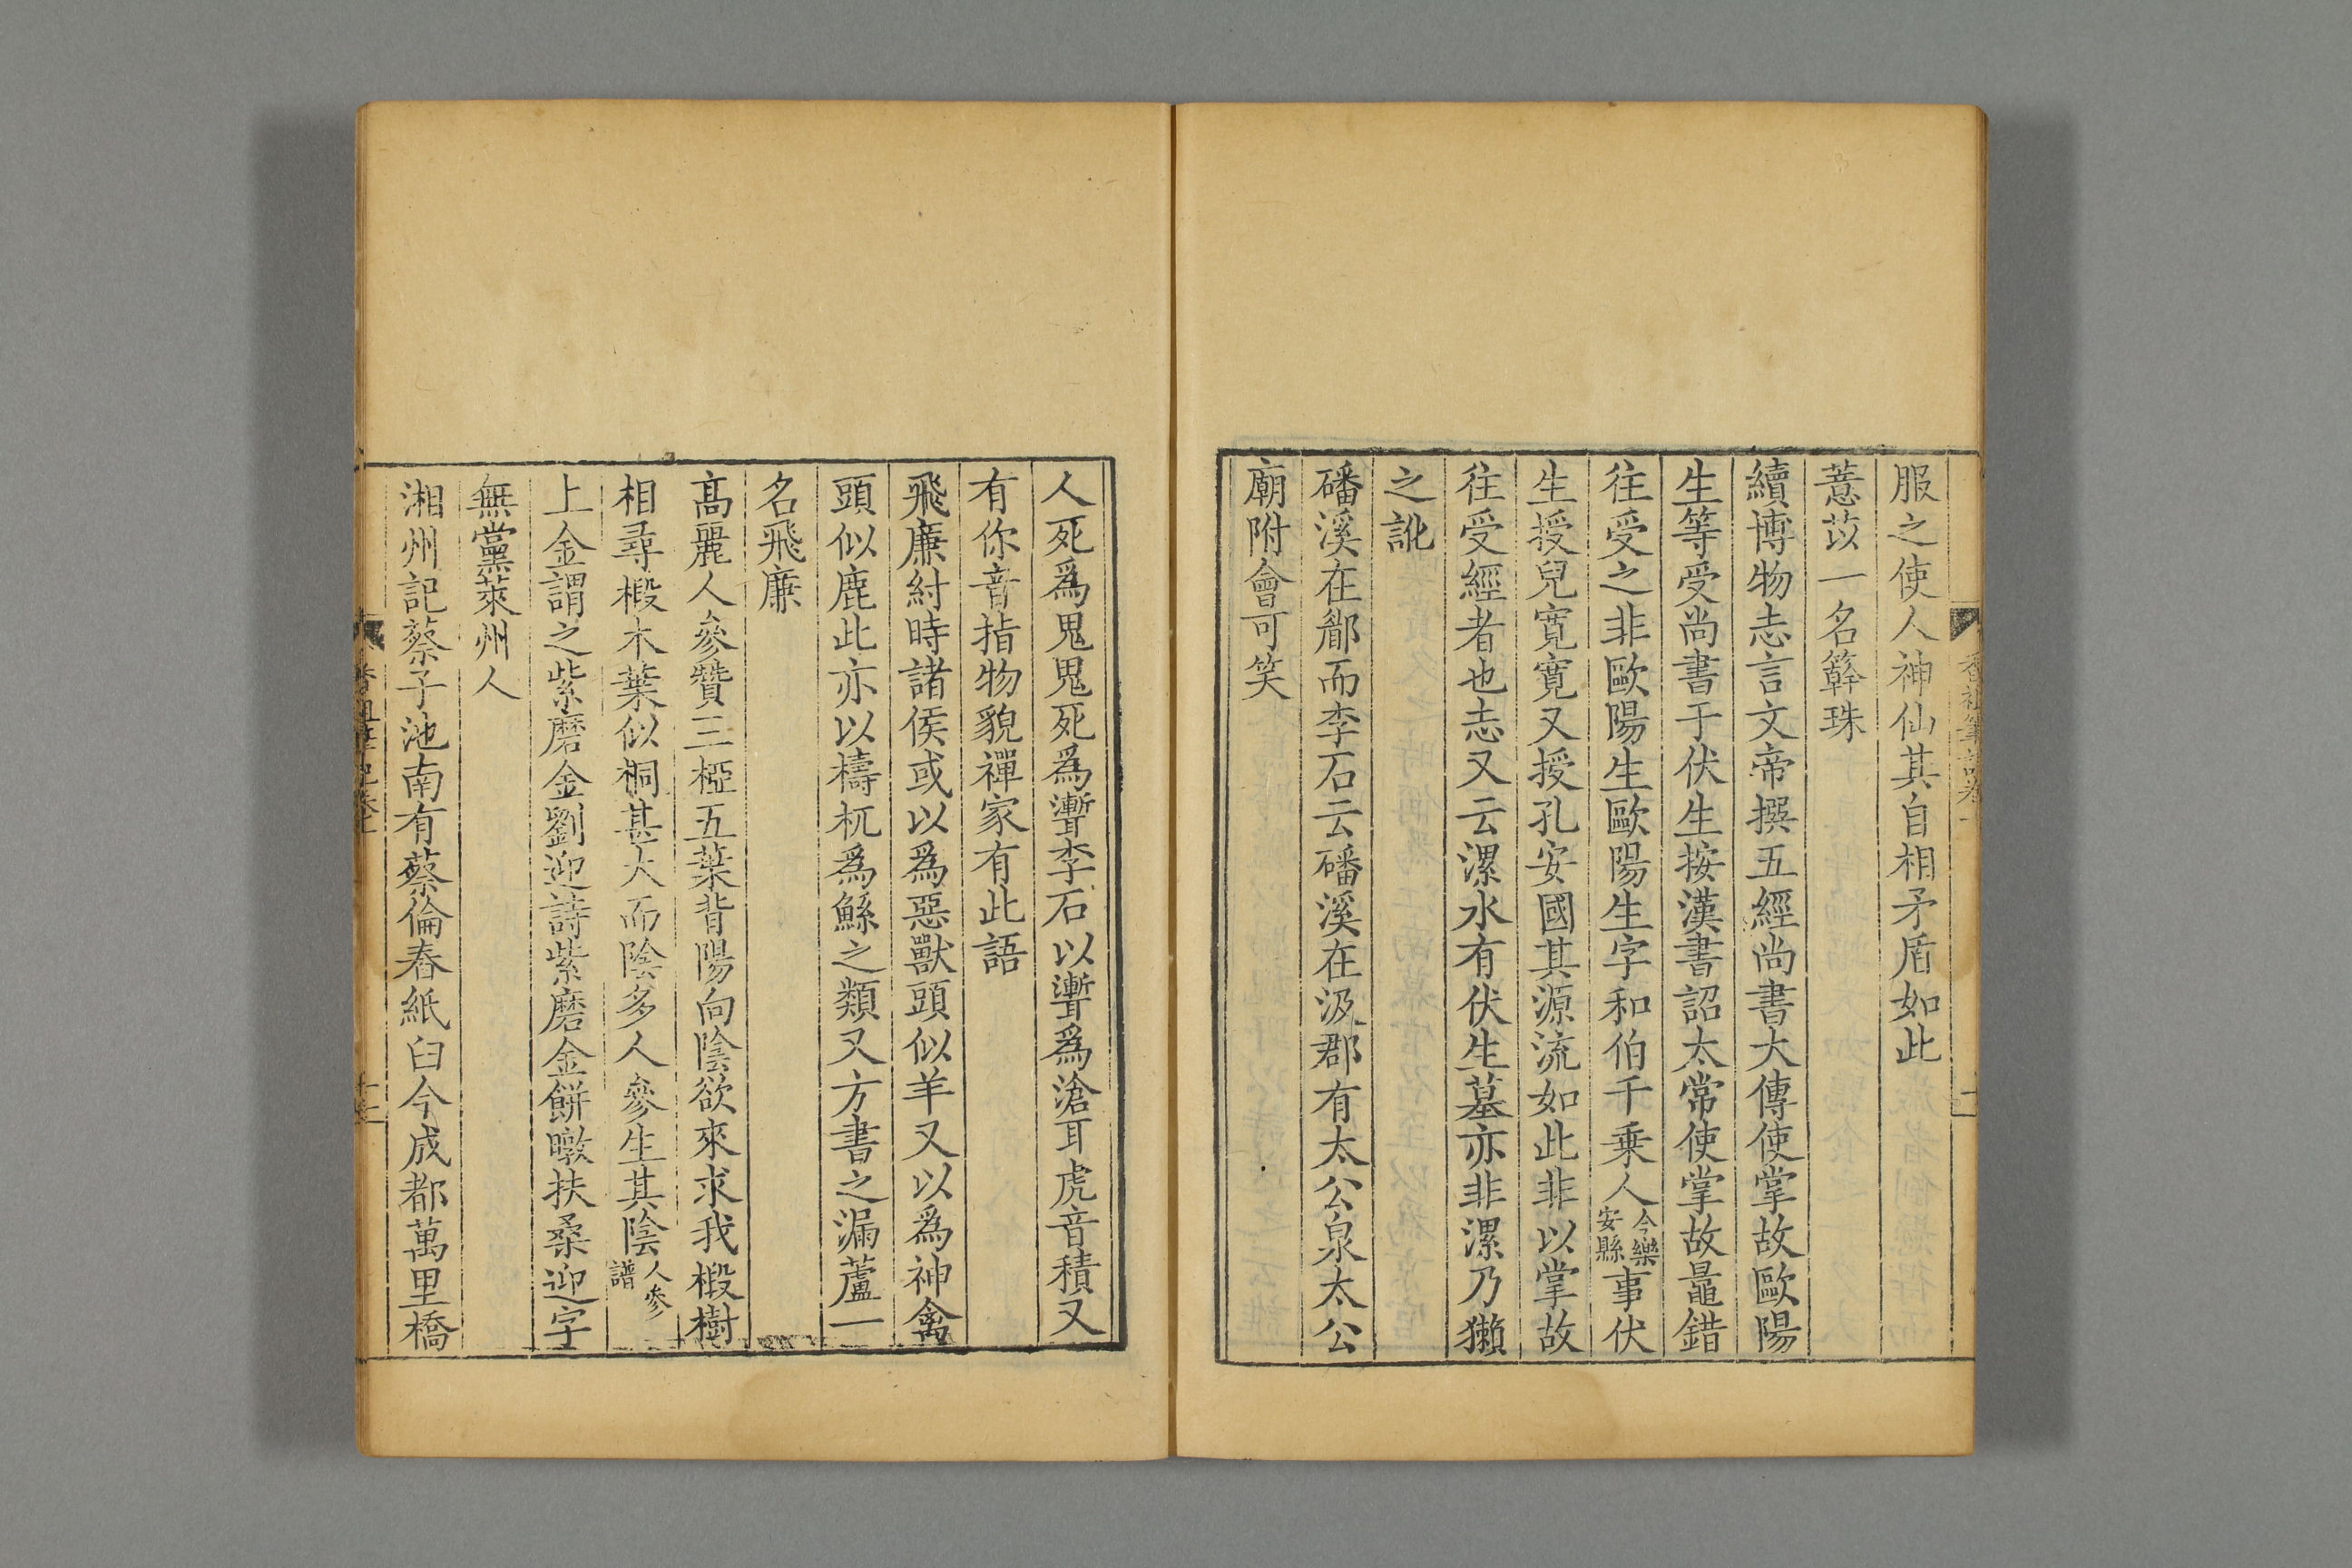 服之使人神仙其自相矛盾如此
薏苡一名簳珠
續博物志言文帝撰五經尚書大傳使掌故歐陽
生等受尚書于伏生按漢書詔太常使掌故鼂錯
往受之非歐陽生歐陽生字和伯千乗人今樂安縣事伏
生授兒寛寛又授孔安國其源流如此非以掌故
往受經者也志又云漯水有伏生墓亦非漯乃獺
之訛
磻溪在郿而李石云磻溪在汲郡有太公泉太公
廟附會可笑
人死爲鬼鬼死爲聻李石以聻爲滄耳虎音積又
有你音指物貌禪家有此語
飛廉紂時諸侯或以爲惡獸頭似羊又以爲神禽
頭似鹿此亦以檮杌爲鯀之類又方書之漏蘆一
名飛廉
髙麗人參贊三椏五葉背陽向陰欲來求我椴樹
相尋椴木葉似桐甚大而陰多人參生其陰人參譜
上金謂之紫磨金劉迎詩紫磨金餅暾扶桑迎字
無黨萊州人
湘州記蔡子池南有蔡倫舂紙臼今成都萬里橋